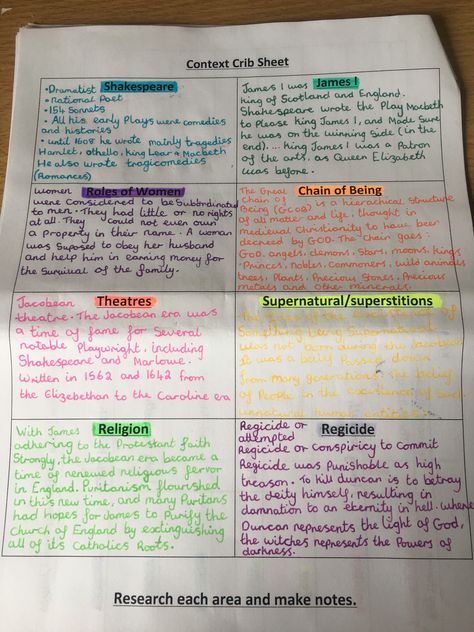 Context Crib Sheet
Shakespeare
•Dramatist
•National Poet
•154 Sonnets
• All his early Plays were comedies
and histories
• until 1608 he wrote mainly tragedies
Hamlet, othello, king Lear & Macbeth
He also wrote tragicomedies
(Romances)
James I
James I was
King of Scotland and England.
Shakespeare wrote the Play Macbeth
to Please king James I, and Made Sure
he was on the winning Side (in the
end).... king James I was a Patron
of the arts, as Queen Elizabeth
was before.
Roles of Women
women
were considered to be Subordinated
to men. They had little or no rights
at all. They would not even own
a property in their name. A woman
was Suposed to obey her husband
and help him in earning money for
the Survival of the family.
Chain of Being
The Great
Chain of
Being (GCOB) is a hierachical structure
of all matter and life, thought in
medieval Christianity to have been
decreed by GOD. The chain goes -
GOD, angels, demons, Stars, moons, kings
Princes, Nobles, Commoners, wild animals
trees, Plants, Precious Stones, Precious
metals and other minerals.
Theatres
Jacobean
theatre. The Jacobean era was
a time of fame for Several
notable Playwright, including
Shakespeare and Marlowe.
Written in 1562 and 1642 from
the Elizebethan to the Caroline era
Supernatural/superstitions
Something being Supernatural
was not born during the Jacobean
It was a belif Passed down
from Many generations. The belief
of People in the existence of Such
unnatural human entities.
Religion
With James
adhering to the Protestant faith
Strongly, the Jacobean era became a
time of renewed religious fervor
in England. Puritanism flourished
in this new time, and many Puritans
had hopes for James to Purify the
Church of England by extinguishing
all of its Catholics Roots.
Regicide
Regicide or
attempted
Regicide or Conspiricy to Commit
Regicide was Punishable as high
treason. To kill duncan is to betray
the deity himself, resulting in
damnation to an eternity in hell. where
Duncan represents the Light of God,
the witches represents the Powers of
darkness.
Research each area and make notes.